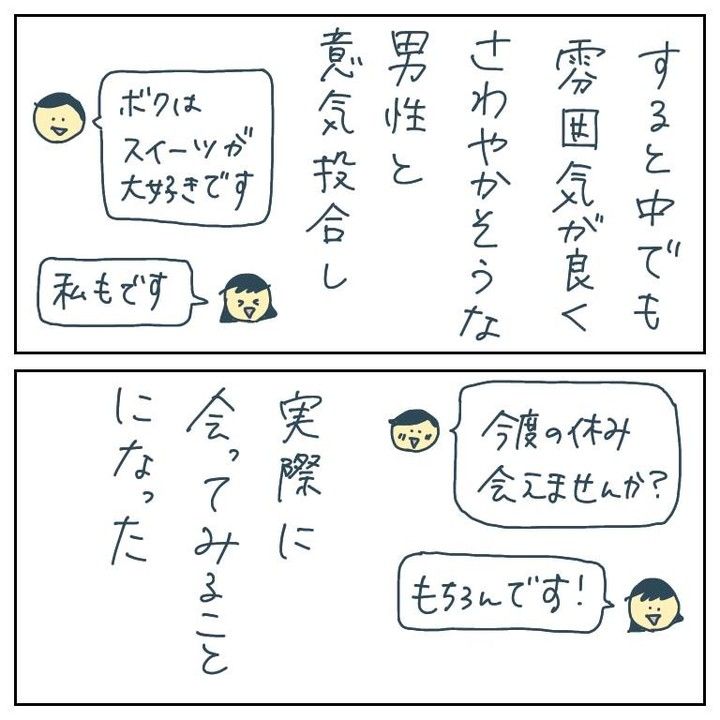 すると中でも
雰囲気が良く
さわやかそうな
男性と
意気投合し
ボクは
スイーツが
大好きです
私もです
今度の休み
会えませんか?
もちろんです!
実際に
会ってみること
になった